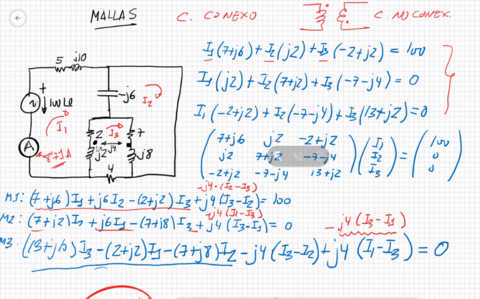 MALLAS
C. CONEXO
C. NO CONEX.
5 j10
-j6
I2
100 |0
I1
I3
2 7
j2 j4 j8
A
4
I1(7+j6)+I2(j2)+I3(-2+j2)=100
I1(j2)+I2(7+j2)+I3(-7-j4)=0
I1(-2+j2)+I2(-7-j4)+I3(13+j2)=0
7+j6 j2 -2+j2 I1 100
j2 7+j2 -7-j4 I2 = 0
-2+j2 -7-j4 13+j2 I3 0
-j4·(I2-I3)
M1: (7+j6)I1+j6I2-(2+j2)I3+j4(I3-I2)=100
-j4(I1-I3)
M2: (7+j2)I2+j6I1-(7+j8)I3+j4(I3-I1)=0
-j4(I3-I1)
M3: (13+j10)I3-(2+j2)I1-(7+j8)I2-j4(I3-I2)+j4(I1-I3)=0